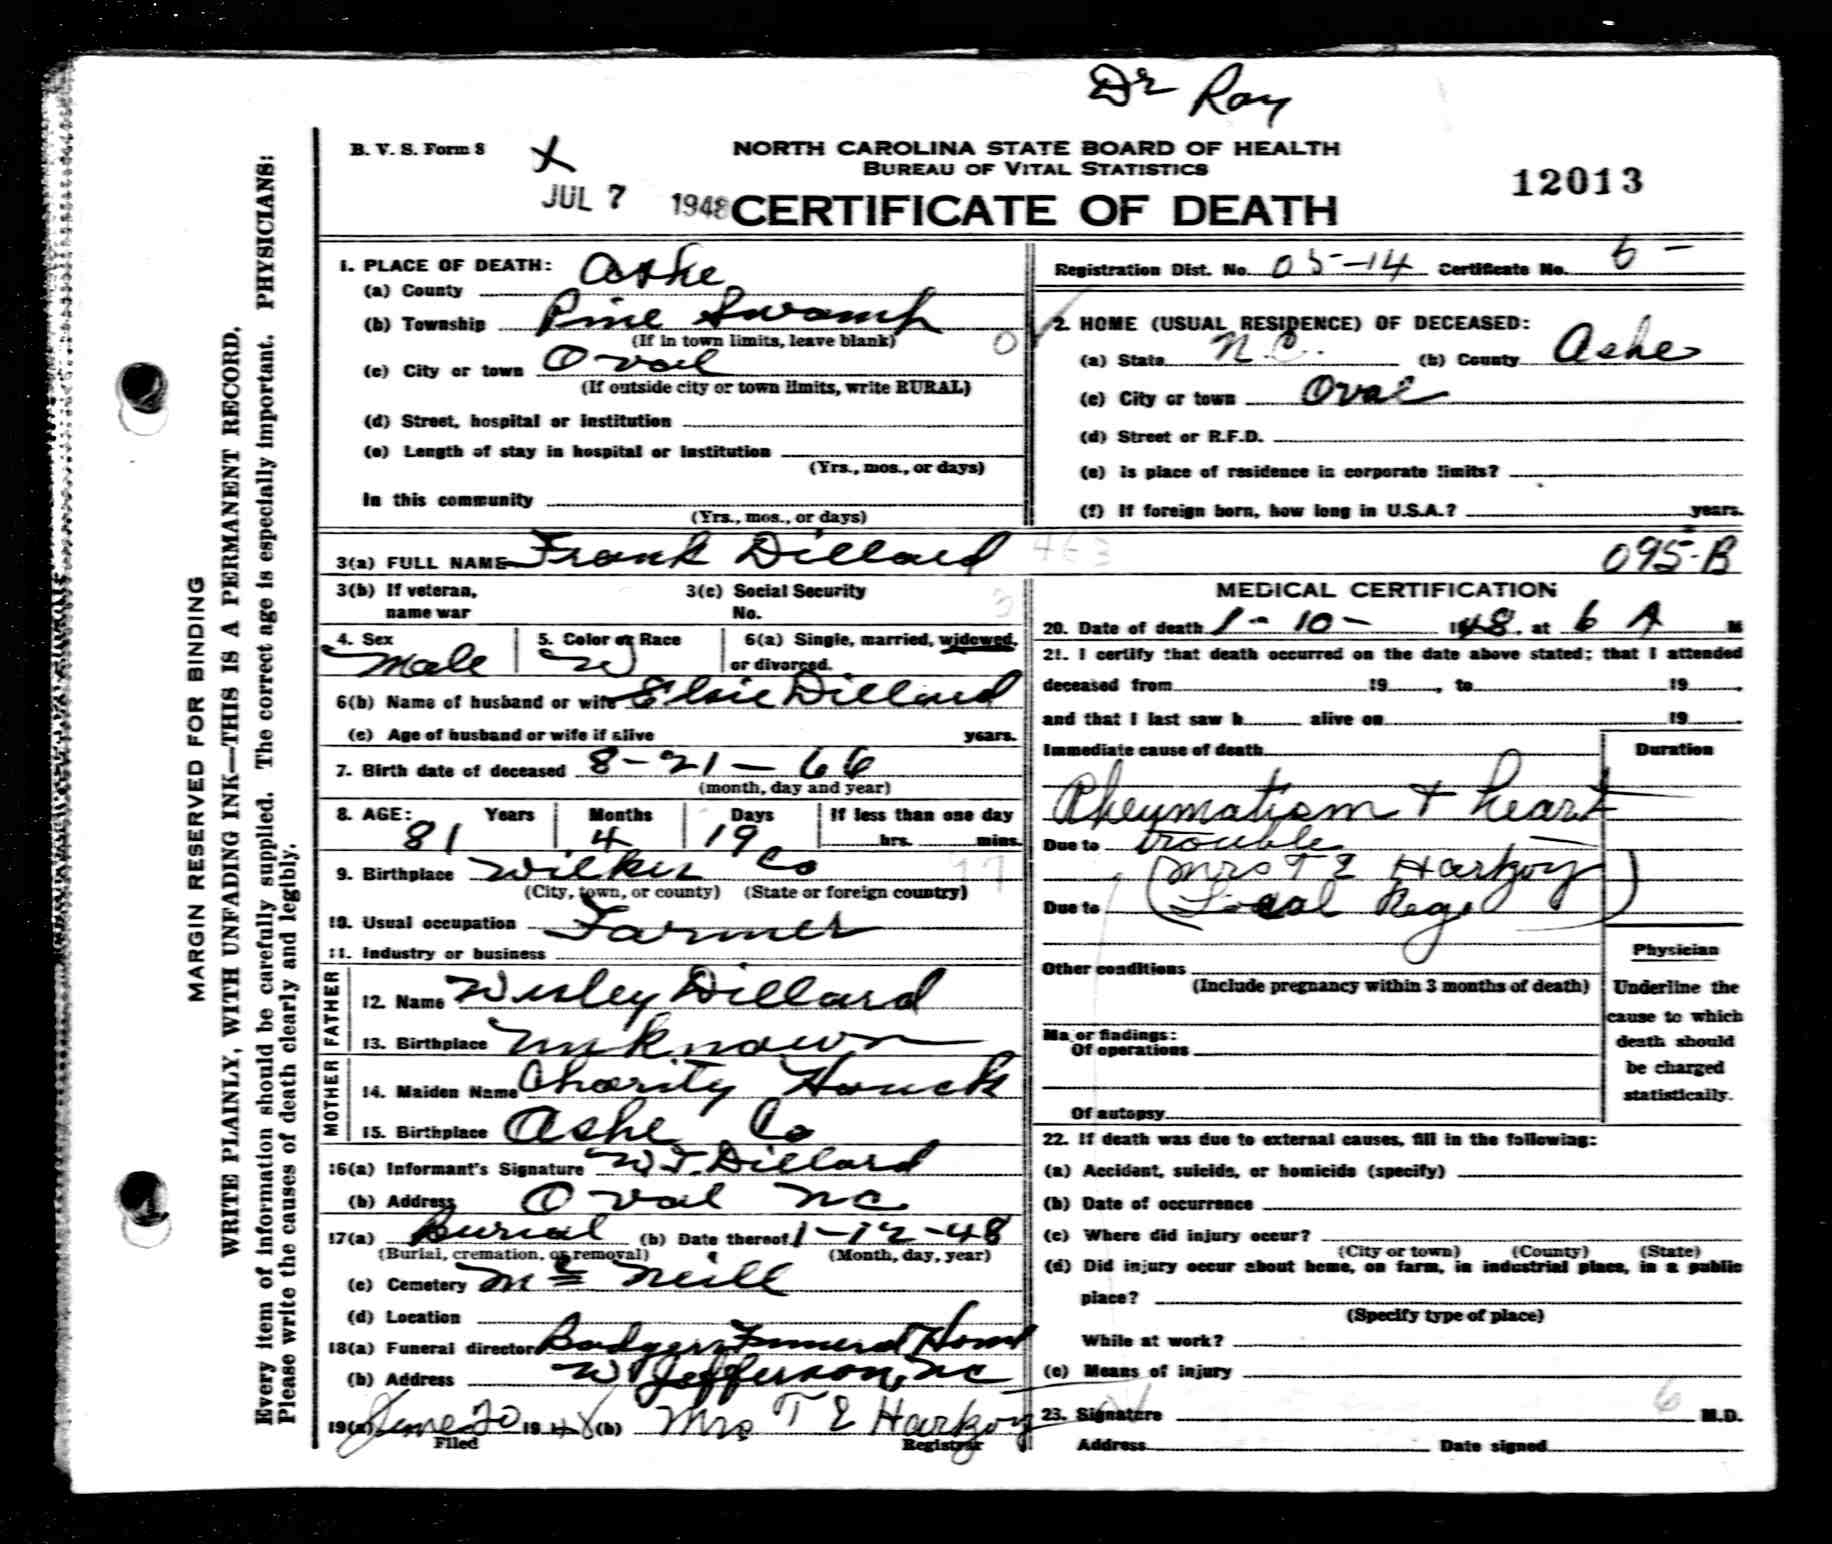 Dr Ray
B. V. S. Form 8
X
JUL 7 1948
NORTH CAROLINA STATE BOARD OF HEALTH
BUREAU OF VITAL STATISTICS
CERTIFICATE OF DEATH
12013
MARGIN RESERVED FOR BINDING
WRITE PLAINLY, WITH UNFADING INK—THIS IS A PERMANENT RECORD.
Every item of information should be carefully supplied. The correct age is especially important. PHYSICIANS:
Please write the causes of death clearly and legibly.
1. PLACE OF DEATH:
(a) County Ashe
(b) Township Pine Swamp
(If in town limits, leave blank)
(c) City or town Oval
(If outside city or town limits, write RURAL)
(d) Street, hospital or institution
(e) Length of stay in hospital or institution
(Yrs., mos., or days)
In this community
(Yrs., mos., or days)
Registration Dist. No. 05-14 Certificate No. 5-
2. HOME (USUAL RESIDENCE) OF DECEASED:
(a) State N.C. (b) County Ashe
(c) City or town Oval
(d) Street or R.F.D.
(e) Is place of residence in corporate limits?
(f) If foreign born, how long in U.S.A.? years.
3(a) FULL NAME Frank Dillard
463
095-B
3(b) If veteran,
name war
3(c) Social Security
No.
4. Sex Male
5. Color or Race W
6(a) Single, married, widowed,
or divorced.
6(b) Name of husband or wife Elsie Dillard
(c) Age of husband or wife if alive years.
7. Birth date of deceased 8-21-66
(month, day and year)
8. AGE: Years Months Days If less than one day
81 4 19 hrs. mins.
9. Birthplace Wilkes Co
(City, town, or county) (State or foreign country)
10. Usual occupation Farmer
11. Industry or business
FATHER
12. Name Wesley Dillard
13. Birthplace Unknown
MOTHER
14. Maiden Name Charity Houck
15. Birthplace Ashe Co
16(a) Informant's Signature W.T. Dillard
(b) Address Oval NC
17(a) Burial (b) Date thereof 1-12-48
(Burial, cremation, or removal) (Month, day, year)
(c) Cemetery McNeill
(d) Location
18(a) Funeral director Badger Funeral Home
(b) Address W Jefferson, NC
19(a) June 20 1948 (b) Mrs T E Harkzoy
Filed Registrar
MEDICAL CERTIFICATION
20. Date of death 1-10- 1948. at 6 A M
21. I certify that death occurred on the date above stated; that I attended
deceased from 19 , to 19 .
and that I last saw h alive on 19
Immediate cause of death Duration
Rheumatism + heart
Due to trouble
(Mrs T E Harkzoy
Due to Local Reg)
Other conditions
(Include pregnancy within 3 months of death)
Major findings:
Of operations
Of autopsy
Physician
Underline the
cause to which
death should
be charged
statistically.
22. If death was due to external causes, fill in the following:
(a) Accident, suicide, or homicide (specify)
(b) Date of occurrence
(c) Where did injury occur?
(City or town) (County) (State)
(d) Did injury occur about home, on farm, in industrial place, in a public
place?
(Specify type of place)
While at work?
(e) Means of injury
23. Signature M.D.
Address Date signed